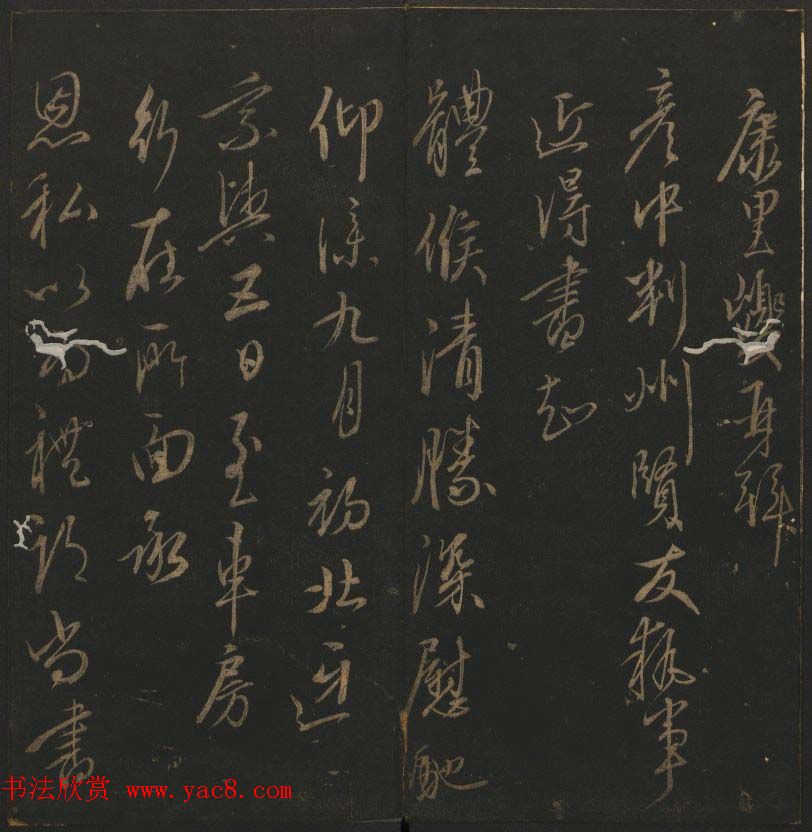 康里巎巎再拜
彦中判州賢友執事
近得書知
體候清勝深慰馳
仰深九月初北迓
乘輿五日至車房
行在所面承
恩私以為禮部尚書
书法欣赏 www.yac8.com